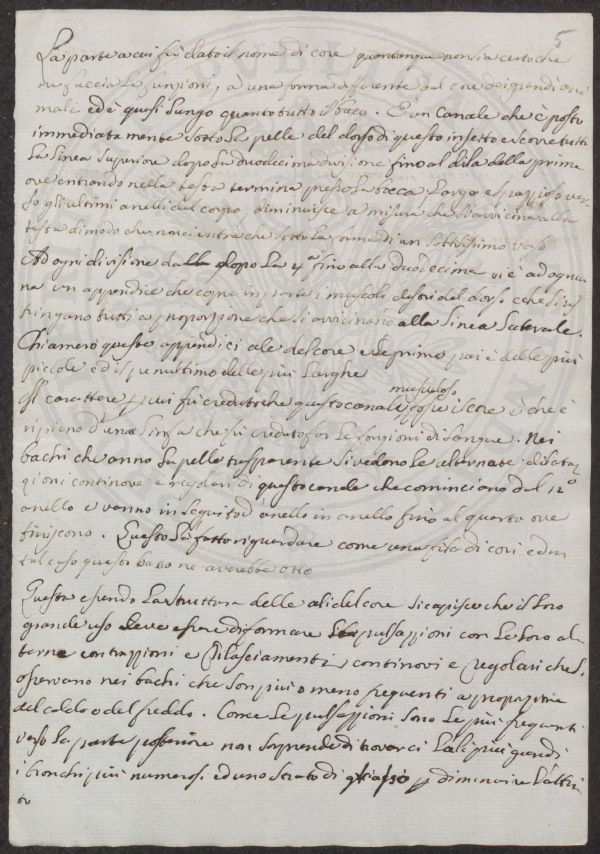 5
La parte a cui fù dato il nome di core quantunque non sia certo che
ne faccia le funzioni, à una forma differente dal core dei grandi ani
mali ed è quasi lungo quanto tutto il baco. È un canale che è posto
immediatamente sotto la pelle del dorso di questo insetto e scorre tutta
la linea superiore dopo la duodecima divisione fino al di la della prima
ove entrando nella testa termina presso la bocca. Largo e spazzioso ver
so gli ultimi anelli del corpo, diminuisce a misura che si avvicina alla
testa di modo che non ci entra che sotto la forma di un sottilissimo vaso
Ad ogni divisione dalla dopo la 4.a fino alla duodecima vi è ad ognu
na un appendice che copre in parte i muscoli destri del dorso e che si res
tringano tutti a proporzione che si avvicinano alla linea laterale.
Chiamerò queste appendici ale del core e le prime pari è delle più
piccole ed il penultimo delle più larghe
muscoloso
Il carattere p cui fù creduto che questo canale fosse il core è che è
ripieno d'una linfa che si è creduto far le fonzioni di sangue. Nei
bachi che anno la pelle trasparente si vedono le alternate dilata
zioni continove e regolari di questo canale che cominciano dal 12.o
anello e vanno in seguito d'anello in anello fino al quarto ove
finiscono. Questo l'à fatto riguardare come una fila di cori ed in
tal caso questo baco ne averebbe otto
Questa essendo la struttura delle ali del core si capisce che il loro
grande uso deve essere di formare le pulsazzioni con le loro al
terne contrazzioni e rilasciamenti continovi e regolari che s'
osservano nei bachi che son più o meno frequenti a proporzione
del caldo o del freddo. Come le pulsazzioni sono le più frequenti
verso la parte posteriore non sorprende di trovarci l'ali più grandi
i bronchi più numerosi ed uno strato di grasso p diminuire l'attri
to